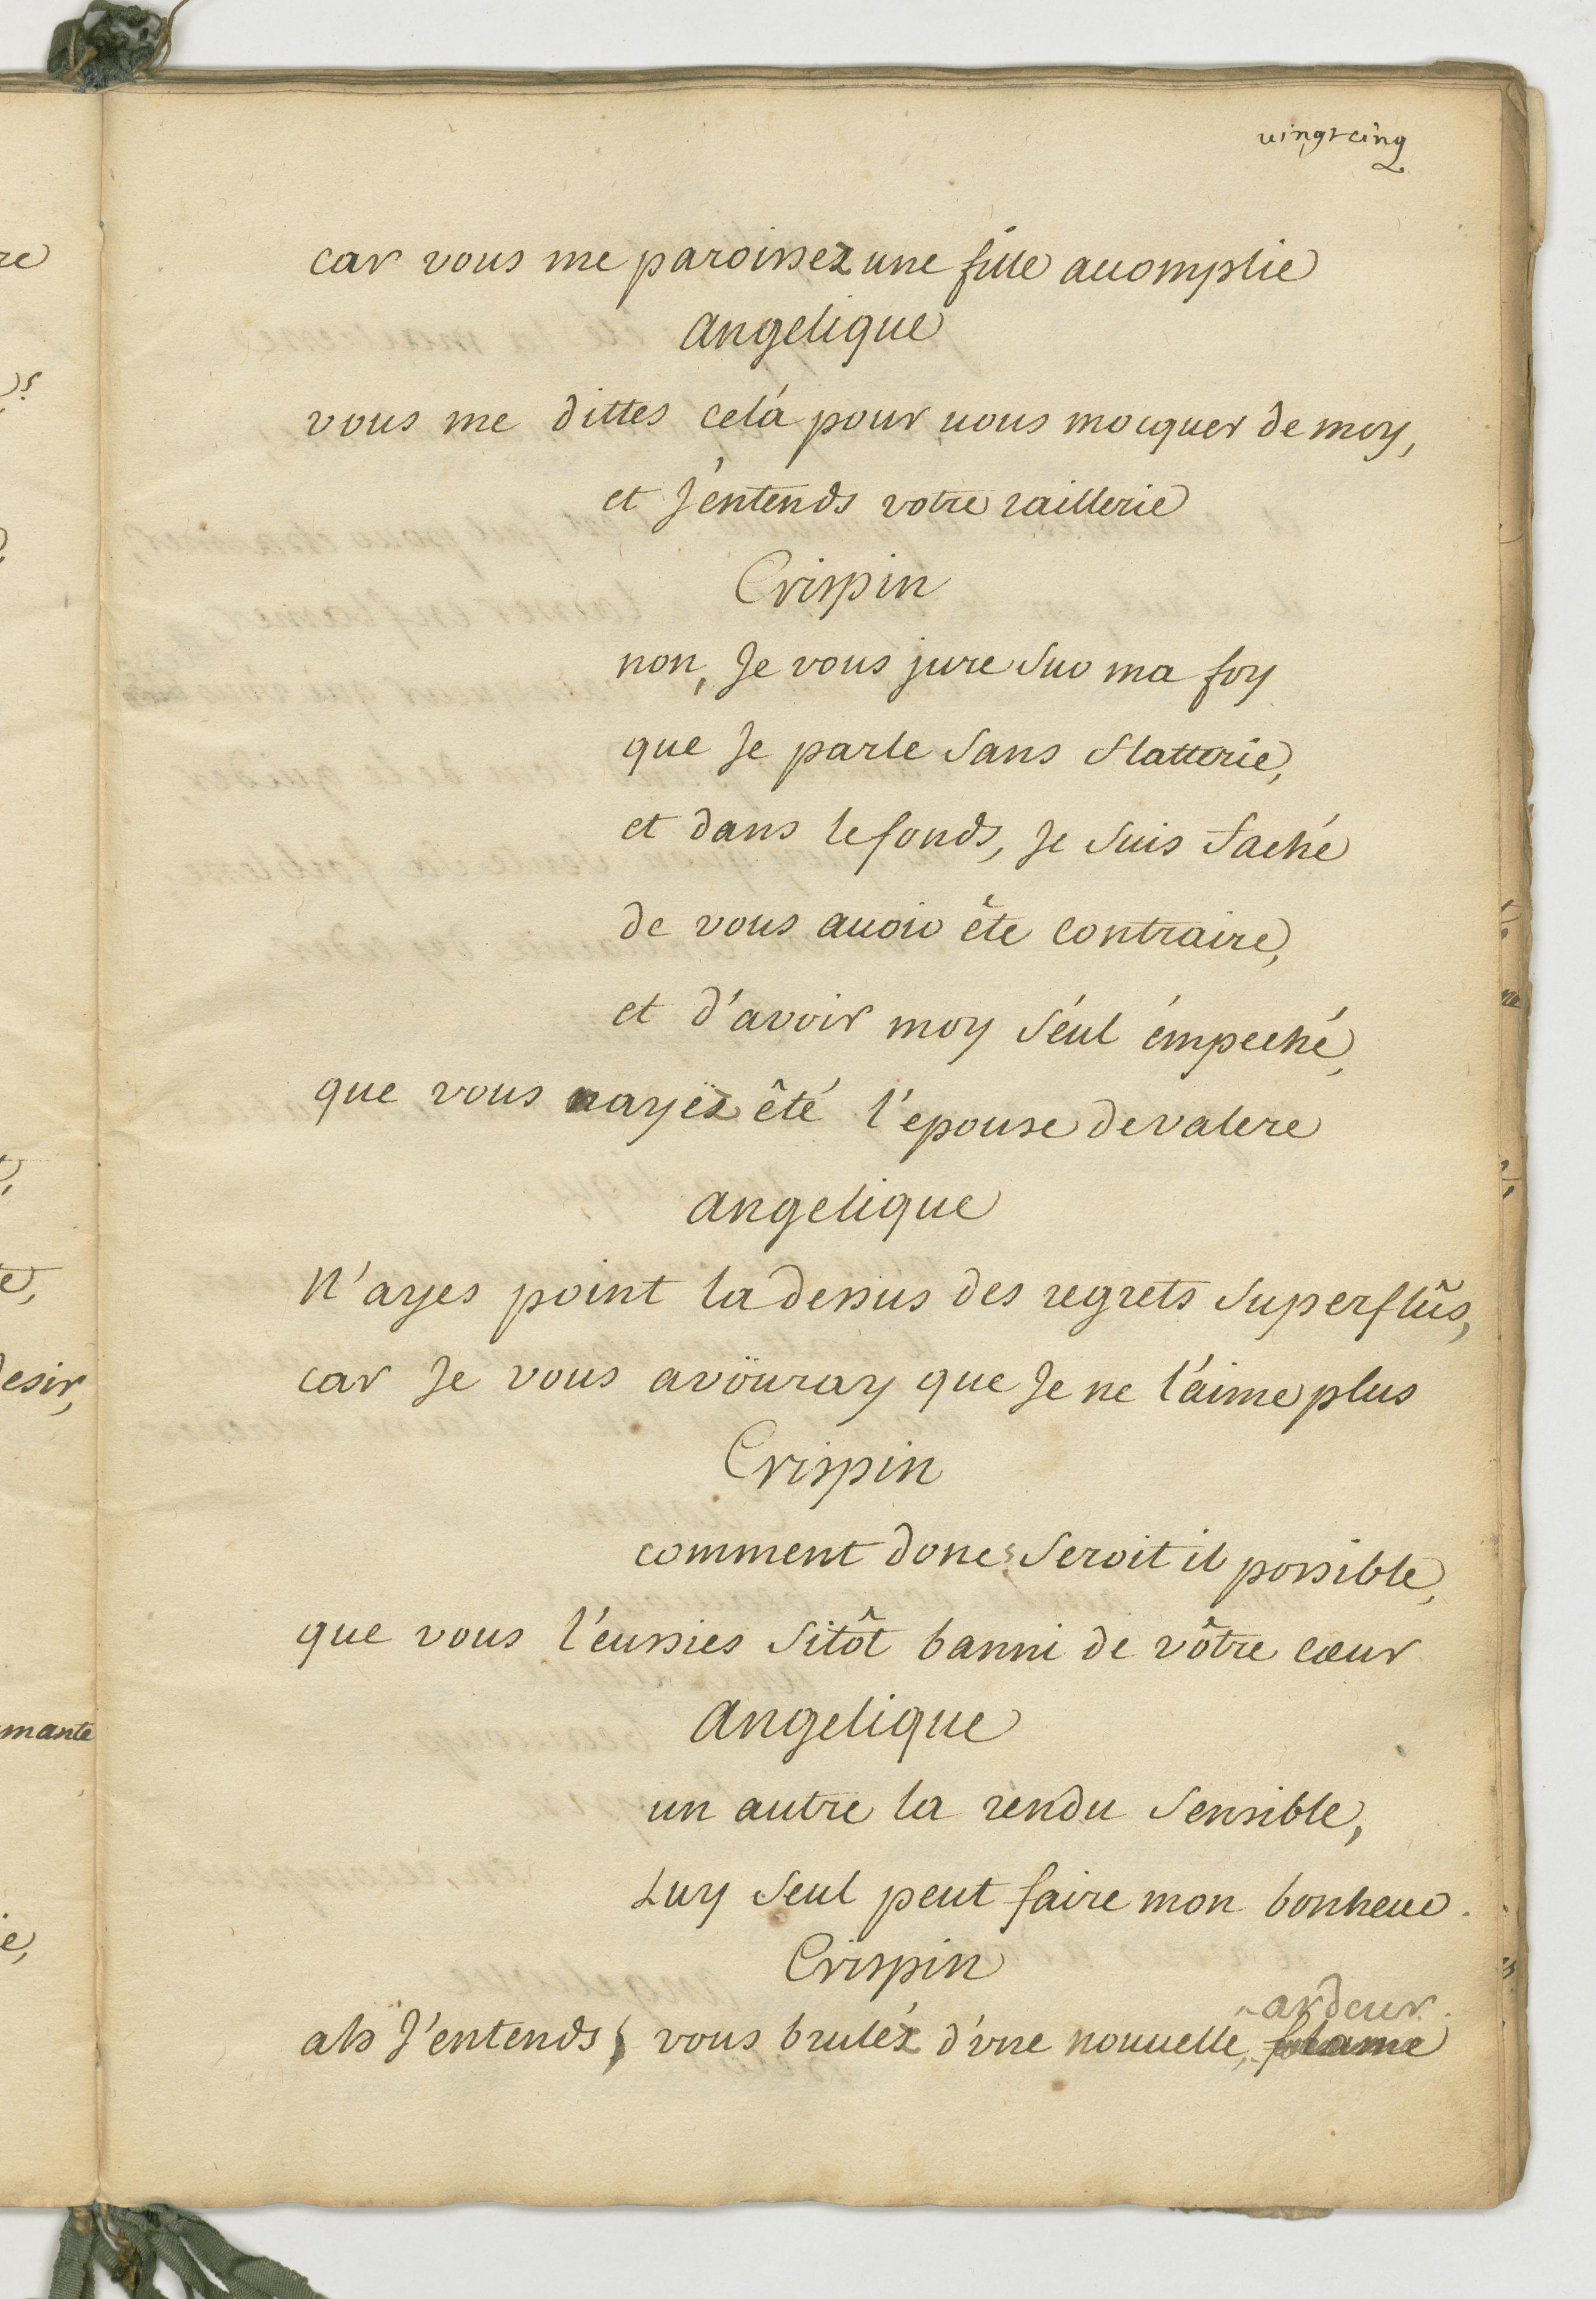 vingt cinq
car vous me paroissez une fille accomplie
angelique
vous me dittes celá pour vous mocquer de moy,
et J'entends votre raillerie
Crispin
non, Je vous jure sur ma foy
que Je parle sans flatterie,
et dans le fonds, Je suis faché
de vous avoir êté contraire,
et d'avoir moy séul émpeché,
que vous nayéz êté l'epouse de valere
angelique
N'ayes point la dessus des regrets superflûs,
car Je vous avoüray que Je ne l'aime plus
Crispin
comment donc? seroit il possible,
que vous l'eussies sitôt banni de vôtre cœur
angelique
un autre la rendu sensible,
Luy seul peut faire mon bonheur.
Crispin
ardeur.
ah J'entends, vous bruléz d'une nouvelle, flame
re
t,
e,
desir,
mante
ie,